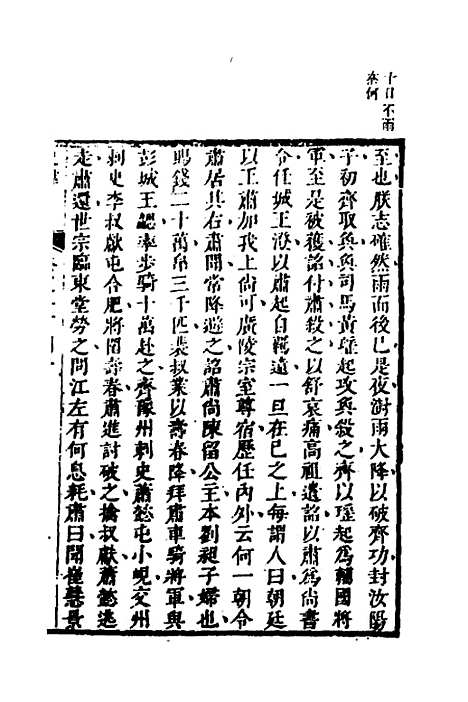 十日不雨
奈何
至也朕志確然雨而後已是夜澍雨大降以破齊功封汝陽
子初齊取奐與司馬黃瑤起攻奐殺之齊以瑤起爲輔國將
軍至是被獲詔付肅殺之以舒哀痛高祖遺詔以肅爲尚書
令任城王澄以肅起自羈遠一旦在已之上每謂人曰朝廷
以王肅加我上尚可廣陵宗室尊宿歷任內外云何一朝令
肅居其右肅聞常降避之詔肅尚陳留公主本劉昶子婦也
賜錢二十萬帛三千匹裴叔業以壽春降拜肅車騎將軍與
彭城王勰率步騎十萬赴之齊豫州刺史蕭懿屯小峴交州
刺史李叔獻屯合肥將圍壽春肅進討破之擒叔獻蕭懿逃
走肅還世宗臨東堂勞之問江左有何息耗肅曰聞崔慧景